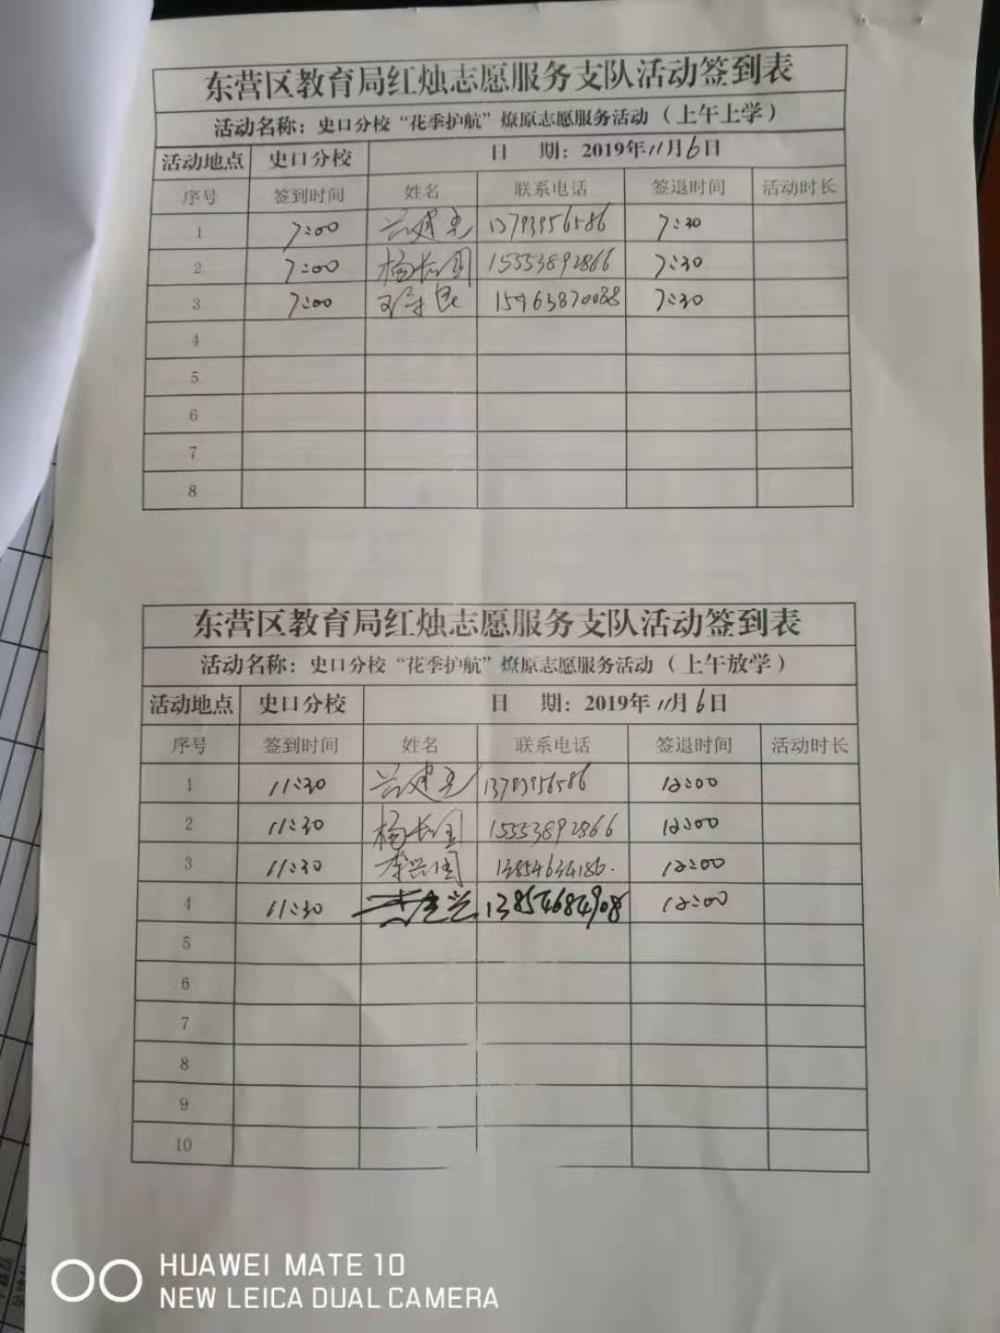 东营区教育局红烛志愿服务支队活动签到表
活动名称：史口分校“花季护航”燎原志愿服务活动（上午上学）
活动地点 史口分校 日 期：2019年11月6日
序号 签到时间 姓名 联系电话 签退时间 活动时长
1 7:00 7:30
2 7:00 杨长国 15553892866 7:30
3 7:00 15963870088 7:30
4
5
6
7
8
东营区教育局红烛志愿服务支队活动签到表
活动名称：史口分校“花季护航”燎原志愿服务活动（上午放学）
活动地点 史口分校 日 期：2019年11月6日
序号 签到时间 姓名 联系电话 签退时间 活动时长
1 11:30 12:00
2 11:30 杨长国 15553892866 12:00
3 11:30 李兴国 13854634186. 12:00
4 11:30 13854684908 12:00
5
6
7
8
9
10
HUAWEI MATE 10
NEW LEICA DUAL CAMERA